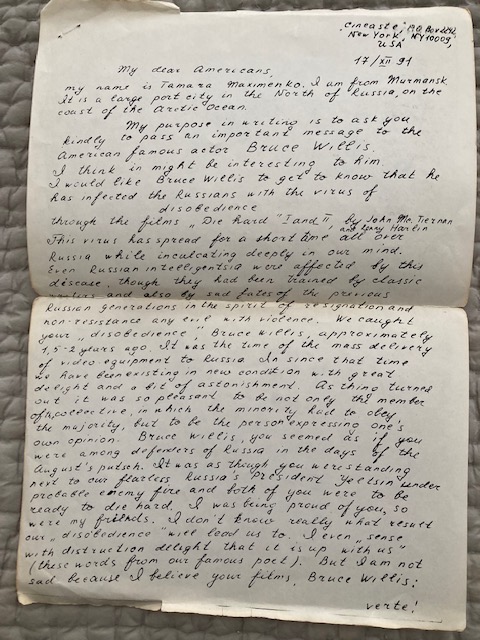 "Cineaste", P.O. Box 2242,
New York, NY 10009,
USA
17/XII 91
My dear Americans,
my name is Tamara Maximenko. I am from Murmansk
It is a large port city in the North of Russia, on the
coast of the Arctic Ocean.
My purpose in writing is to ask you
kindly to pass an important message to the
American famous actor Bruce Willis.
I think in might be interesting to him.
I would like Bruce Willis to get to know that he
has infected the Russians with the virus of
disobedience
through the films „Die hard" I and II, by John Mc.Tiernan
and Renny Harlin
This virus has spread for a short time all over
Russia while inculcating deeply in our mind.
Even Russian intelligentsia were affected by this
disease, though they had been trained by classic
writers and also by sad fates of the previous
Russian generations in the spirit of resignation and
non-resistance any evil with violence. We caught
your „disobedience", Bruce Willis, approximately
1,5-2 years ago. It was the time of the mass delivery
of video equipment to Russia. In since that time
we have been existing in new condition with great
delight and a bit of astonishment. As thing turned
out it was so pleasant to be not only the member
of collective, in which the minority had to obey
the majority, but to be the person expressing one's
own opinion. Bruce Willis, you seemed as if you
were among defenders of Russia in the days of the
August's putsch. It was as though you were standing
next to our fearless Russia's President Yeltsin under
probable enemy fire and both of you were to be
ready to die hard, I was being proud of you, so
were my friends. I don't know really what result
our „disobedience" will lead us to. I even „sense
with distruction delight that it is up with us"
(these words from our famous poet). But I am not
sad because I believe your films, Bruce Willis;
verte!